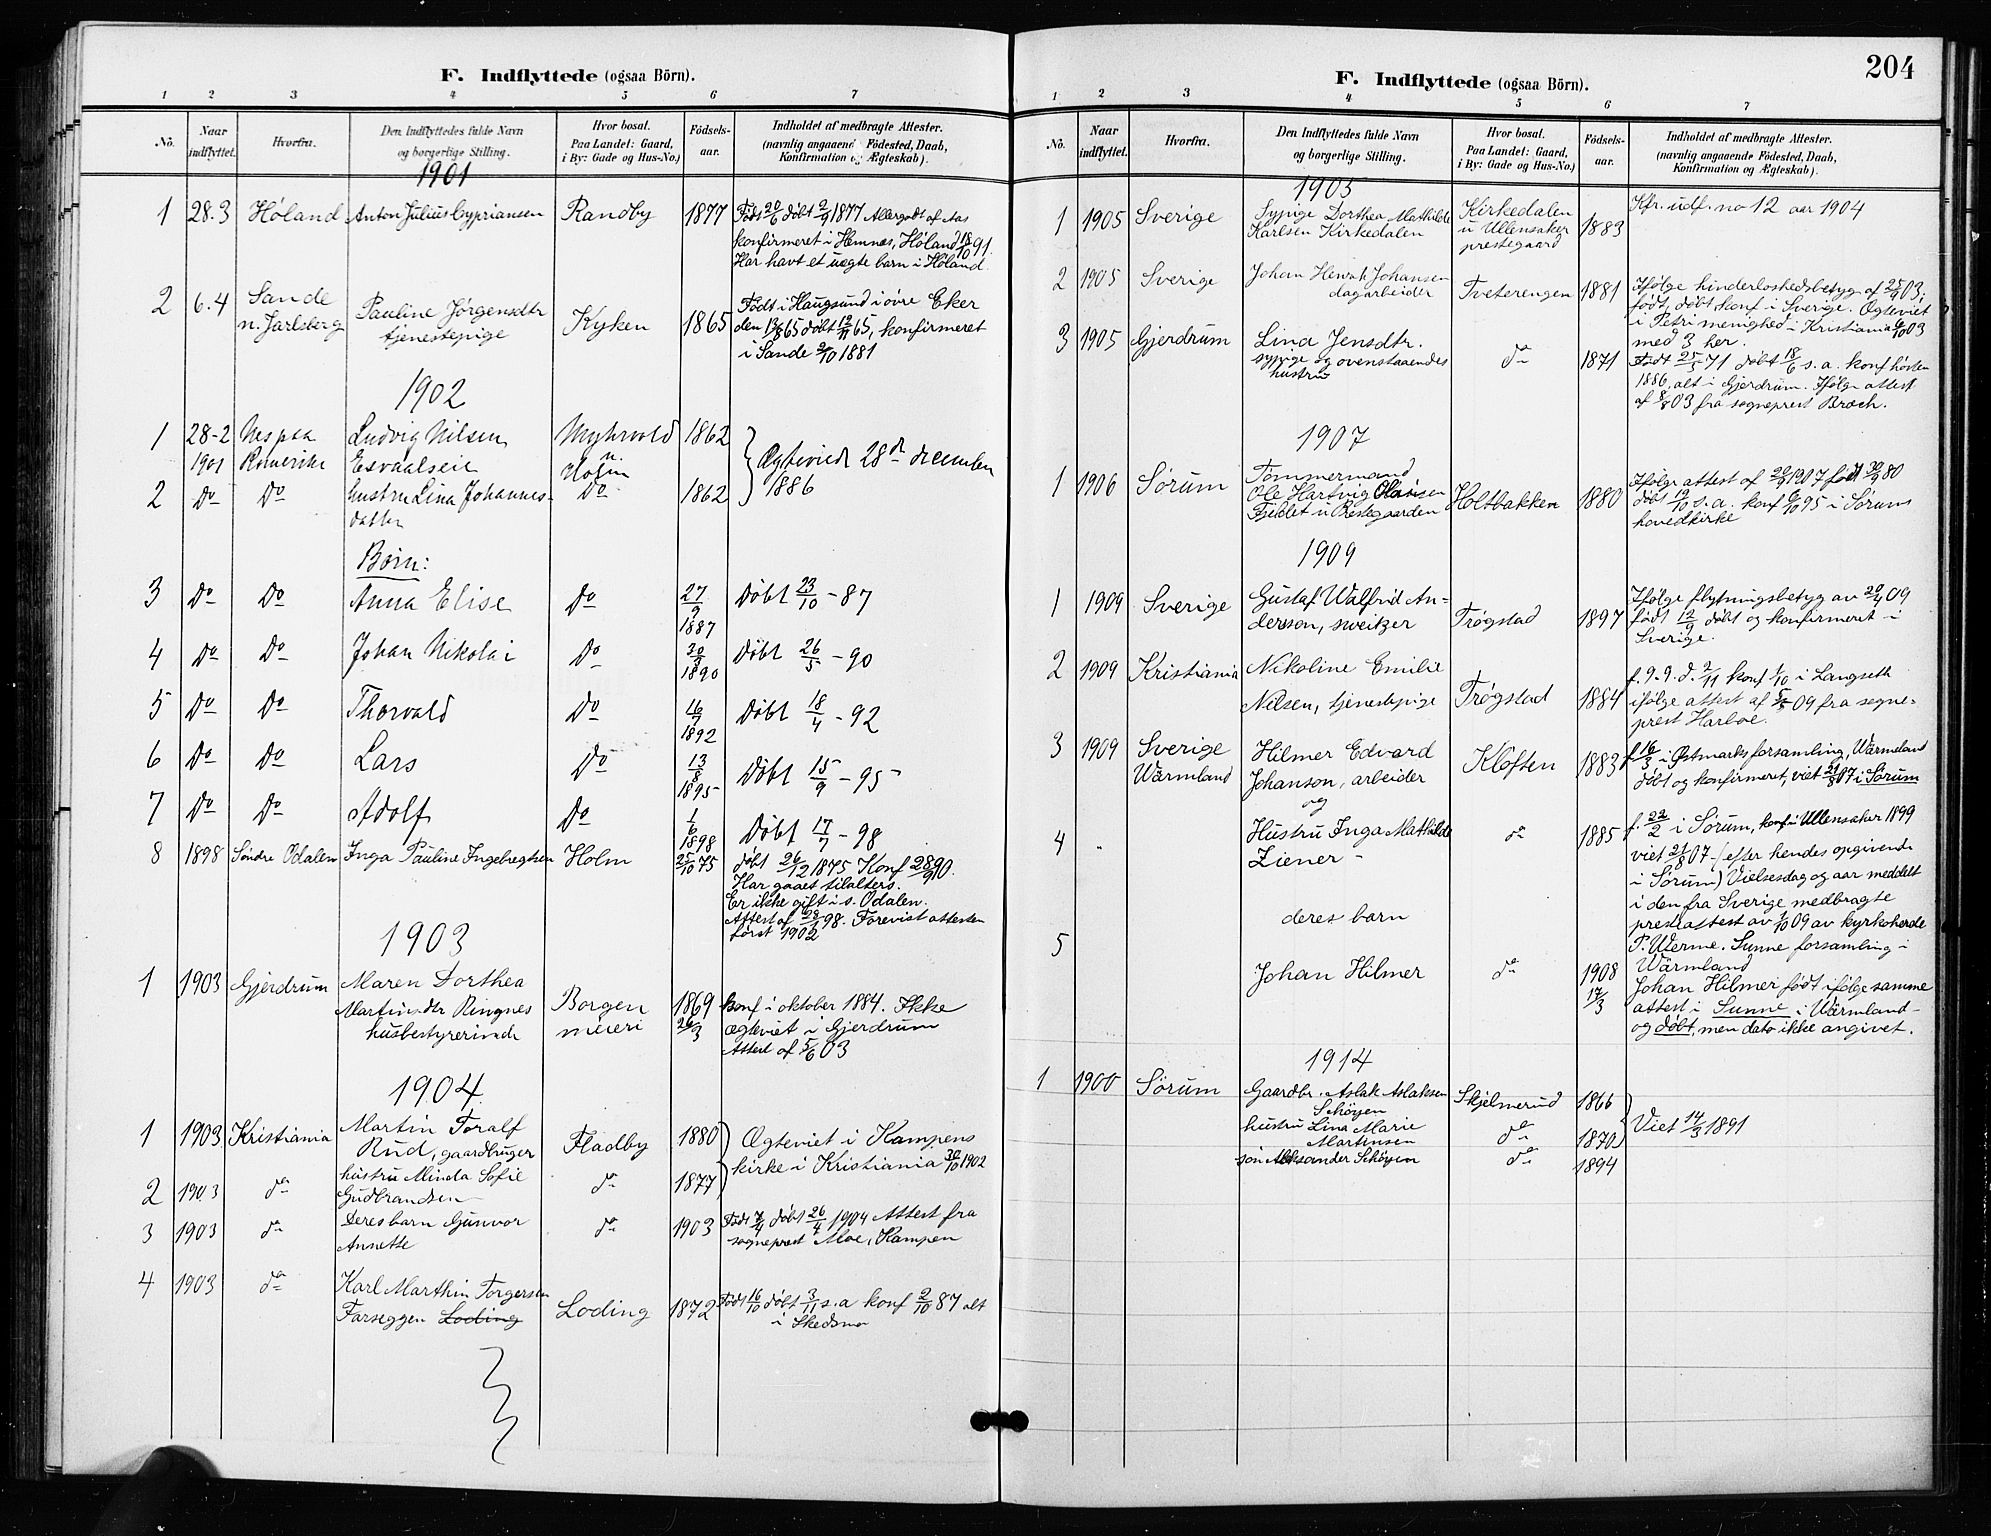 F. Indflyttede (ogsaa Börn).
1 2 3 4 5 6 7
No.
Naar indflyttet.
Hvorfra.
Den Indflyttedes fulde Navn og borgerlige Stilling.
Hvor bosat. Paa Landet: Gaard, i By: Gade og Hus-No.)
Födsels-aar.
Indholdet af medbragte Attester. (navnlig angaaende Födested, Daab, Konfirmation og Ægteskab).
1901
1 28.3 Høland Anton Julius Cypriansen Randby 1877 Født 20/6 døbt 2/9 1877 Allergodt af Aas
konfirmeret i Hemnes, Høland 18/10 91.
Har havt et uægte barn i Høland.
2 6.4 Sande n. Jarlsberg Pauline Jørgensdtr tjenestepige Kyken 1865 Født i Haugsund i øvre Eker
den 13/8 65 døbt 12/11 65, konfirmeret
i Sande 2/10 1881
1902
1 28-2 1901 Nes paa Romerike Ludvig Nilsen Esvaalseie Myhrvold u. Holm 1862
Ægteviet 28de december
1886
2 Do Do hustru Lina Johannesdatter Do 1862
Børn:
3 Do Do Anna Elise Do 27/9 1887 Døbt 23/10 - 87
4 Do Do Johan Nikolai Do 30/3 1890 Døbt 26/5 - 90
5 Do Do Thorvald Do 16/1 1892 Døbt 18/4 - 92
6 Do Do Lars Do 13/8 1895 Døbt 15/9 - 95
7 Do Do Adolf Do 1/6 1898 Døbt 17/7 - 98
8 1898 Søndre Odalen Inga Pauline Ingebregtsen Holm 25/10 75 døbt 26/12 1875 Konf 28/9 90.
Har gaaet tilalters.
Er ikke gift i s. Odalen.
Attest af 28/1 98. Forevist attesten
først 1902
1903
1 1903 Gjerdrum Maren Dorthea
Martinsdtr Ringnes
husbestyrerinde
Borgen meieri
1869 26/3
konf i oktober 1884. Ikke
ægteviet i Gjerdrum
Attest af 5/6 03
1904
1 1903 Kristiania Martin Toralf
Rud, gaardbruger
Fladby 1880
Ægteviet i Kampens
kirke i Kristiania 30/10 1902
2 1903 do hustru Minda Sofie
Gudbrandsen
do 1877
3 1903 do Deres barn Gunvor
Annette
do 1903 Født 7/4 døbt 26/4 1904 Attest fra
sogneprest Moe, Kampen
4 1903 do Karl Marthin Torgersen
Farseggen Loding
Loding 1872 Født 16/10 døbt 3/11 s.a konf 2/10 87 alt
i Skedsmo
204
F. Indflyttede (ogsaa Börn).
1 2 3 4 5 6 7
No.
Naar indflyttet.
Hvorfra.
Den Indflyttedes fulde Navn og borgerlige Stilling.
Hvor bosat. Paa Landet: Gaard, i By: Gade og Hus-No.)
Födsels-aar.
Indholdet af medbragte Attester. (navnlig angaaende Födested, Daab, Konfirmation og Ægteskab).
1905
1 1905 Sverige Sypige Dorthea Mathilde
Karlsen Kirkedalen
Kirkedalen
u Ullensaker
prestegaard
1883
Kfr. udf. no 12 aar 1904
2 1905 Sverige Johan Johansen
dagarbeider
Tveterengen 1881 Ifølge hinderløshedsbetyg af 25/9 03.
født, døbt konf i Sverige. Ægteviet
i Petri menighed i Kristiania 6/10 03
med 3 her.
3 1905 Gjerdrum Lina Jensdtr.
sypige og ovenstaaendes
hustru
do 1871 Født 25/5 71 døbt 18/6 s.a. konf høsten
1886, alt i Gjerdrum. Ifølge attest
af 8/8 03 fra sogneprest Broch.
1907
1 1906 Sørum Tømmermand
Ole Hartvig Olausen
Fjeldet u Prestegaarden
Holtbakken 1880
Ifølge attest af 1907 født 80
døbt 19/10 s.a. konf 6/10 95 i Sørum
hovedkirke
1909
1 1909 Sverige Gustaf Walfrid An-
dersson, sweitzer
Trøgstad 1897
Ifølge flytningsbetyg av 29/4 09
født 12/9 døbt og konfirmeret i
Sverige.
2 1909 Kristiania Nikoline Emilie
Nilsen, tjenestepige
Trøgstad 1884
f. 9.9. d. 2/11 konf 1/10 i Langseth
ifølge attest af 5/5 09 fra sogne-
prest Harboe.
3 1909 Sverige
Wärmland
Hilmer Edvard
Johanson, arbeider
og
Kløften 1883
f. 16/3 i Østmarks forsamling, Wärmland
døbt og konfirmeret, viet 21/8 07 i Sørum
4 " Hustru Inga Mathilde
Ziener -
do 1885
f. 22/2 i Sørum, konf i Ullensaker 1899
viet 21/8 07 - (efter hendes opgivende
i Sørum) Vielsesdag og aar meddelt
i den fra Sverige medbragte
prestattest av 1/10 09 av kyrkoherde
P. Werme. Sunne forsamling i
Wärmland
deres barn
5 Johan Hilmer do 1908 17/3
Johan Hilmer født ifølge samme
attest i Sunne i Wärmland -
og døbt, men dato ikke angivet.
1914
1 1900 Sørum Gaardbr. Aslak Aslaksen
Schöyen
Skjelmerud 1866
Viet 14/3 1891
hustru Lina Marie
Martinsen
do 1870
søn Aleksander Schöyen do 1894